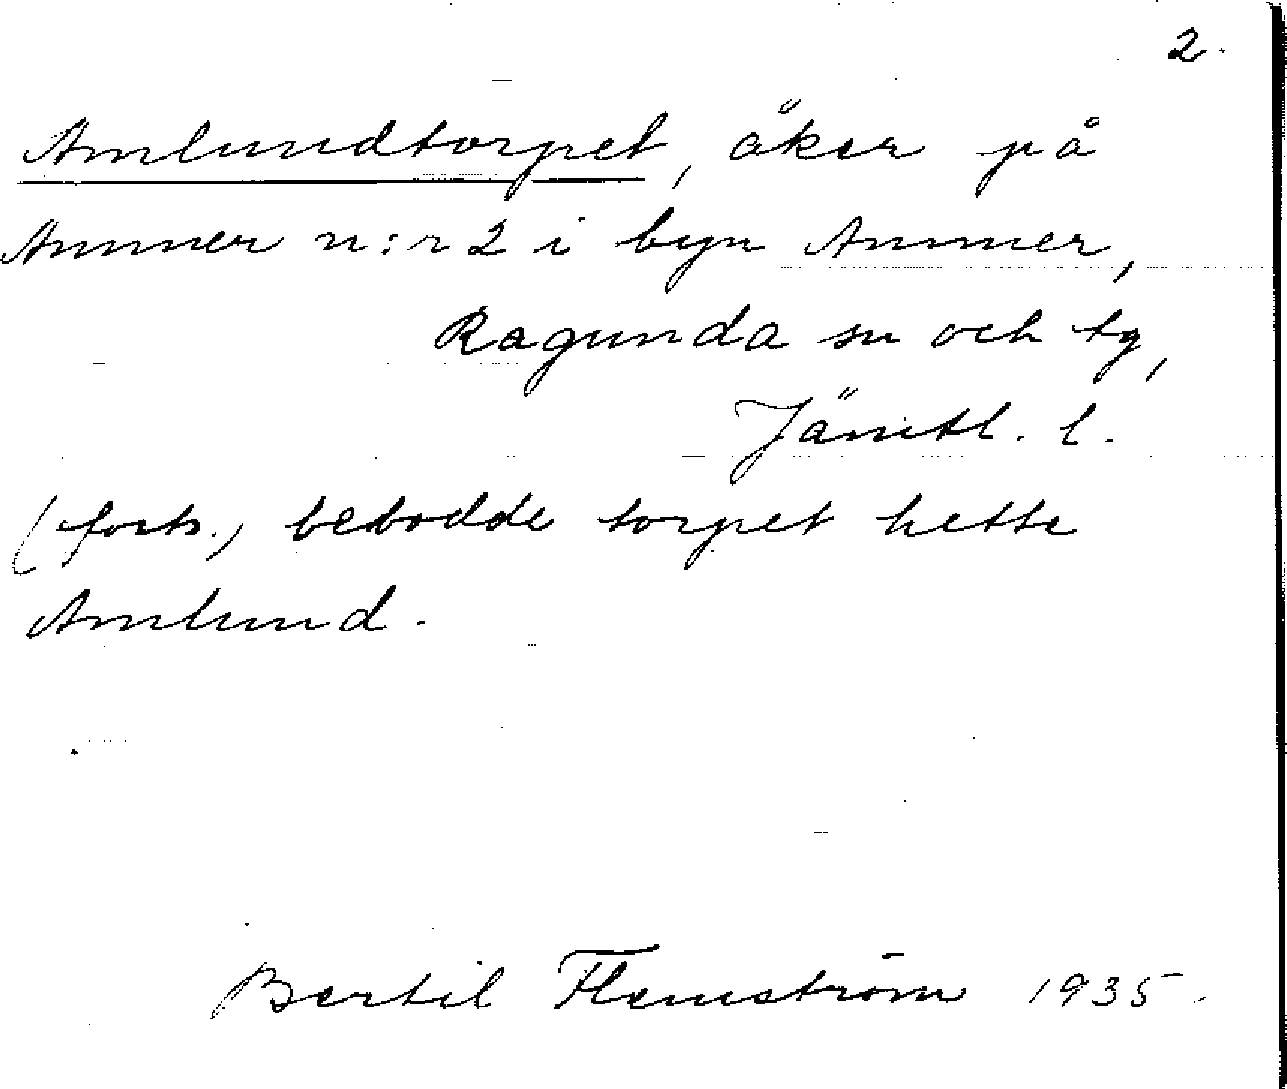 2.
Amlundtorpet, åker på
Ammer n:r 2 i byn Ammer,
Ragunda sn och tg,
Jämtl. l.
(forts., bebodde torpet hette
Amlund.
Bertil Flemström 1935.